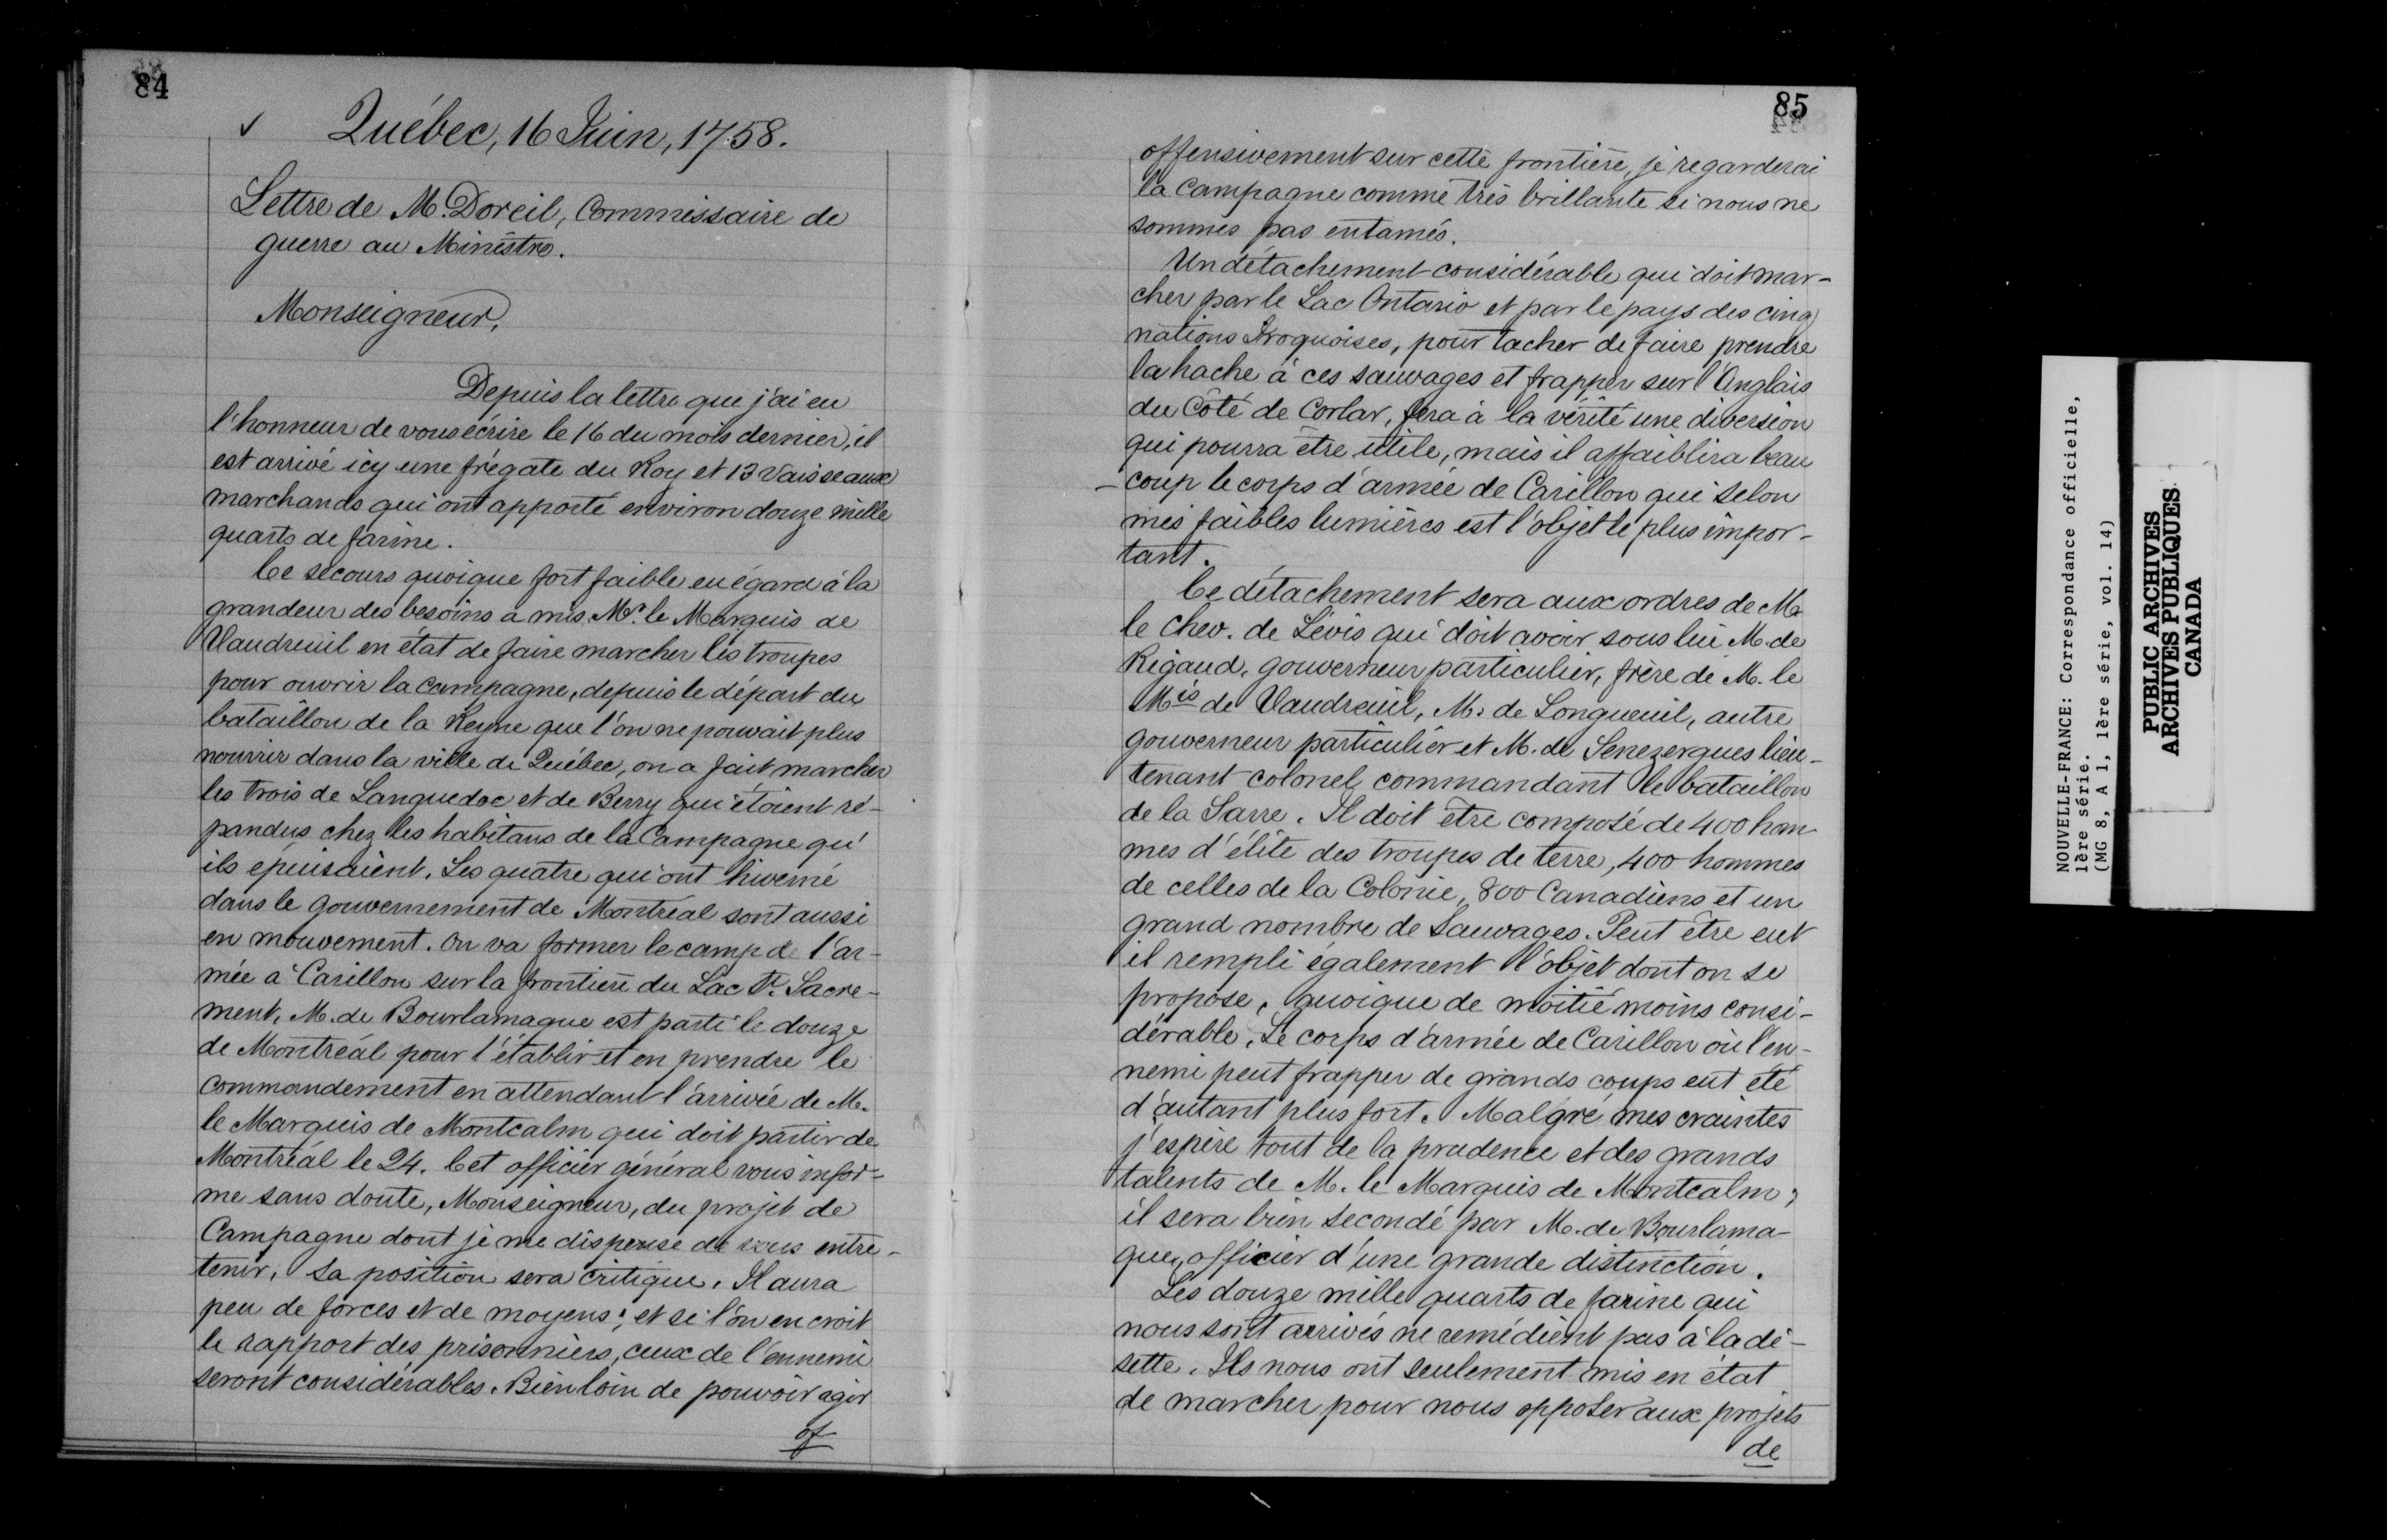 84
✓ Québec, 16 Juin, 1758.
Lettre de M. Doreil, Commissaire de
guerre au Ministre.
Monseigneur,
Depuis la lettre que j'ai eu
l'honneur de vous écrire le 16 du mois dernier, il
est arrivé icy une frégate du Roy et 13 Vaisseaux
marchands qui ont apporté environ douze mille
quarts de farine.
Ce secours quoique fort faible eu égard à la
grandeur des besoins a mis Mr. le Marquis de
Vaudreuil en état de faire marcher les troupes
pour ouvrir la campagne, depuis le départ du
bataillon de la Reyne que l'on ne pouvait plus
nourrir dans la ville de Québec, on a fait marcher
les trois de Languedoc et de Berry qui étoient ré-
pandus chez les habitans de la Campagne qu'
ils épuisaient. Les quatre qui ont hiverné
dans le gouvernement de Montréal sont aussi
en mouvement. On va former le camp de l'ar-
mée à Carillon sur la frontière du Lac St. Sacre-
ment, M. de Bourlamaque est parti le douze
de Montréal pour l'établir et en prendre le
commandement en attendant l'arrivée de M.
le Marquis de Montcalm qui doit partir de
Montréal le 24. Cet officier général vous infor-
me sans doute, Monseigneur, du projet de
Campagne dont je me dispense de vous entre-
tenir. Sa position sera critique. Il aura
peu de forces et de moyens; et si l'on en croit
le rapport des prisonniers, ceux de l'ennemi
seront considérables. Bien loin de pouvoir agir
of
85
offensivement sur cette frontière, je regarderai
la Campagne comme très brillante si nous ne
sommes pas entamés.
Un détachement considérable qui doit mar-
cher par le Lac Ontario et par le pays des cinq
nations Iroquoises, pour tacher de faire prendre
la hache à ces sauvages et frapper sur l'Anglais
du Côté de Corlar, fera à la vérité une diversion
qui pourra être utile, mais il affaiblira beau
-coup le corps d'armée de Carillon qui selon
mes faibles lumières est l'objet le plus impor-
tant.
Ce détachement sera aux ordres de M.
le Chev. de Lévis qui doit avoir sous lui M. de
Rigaud, gouverneur particulier, frère de M. le
Mis de Vaudreuil, M. de Longueuil, autre
gouverneur particulier et M. de Senezergues lieu-
tenant-colonel commandant le bataillon
de la Sarre. Il doit être composé de 400 hom-
mes d'élite des troupes de terre, 400 hommes
de celles de la Colonie, 800 Canadiens et un
grand nombre de Sauvages. Peut être eut
il rempli également l'objet dont on se
propose, quoique de moitié moins consi-
dérable. Le corps d'armée de Carillon où l'en-
nemi peut frapper de grands coups eut été
d'autant plus fort. Malgré mes craintes
j'espère tout de la prudence et des grands
talents de M. le Marquis de Montcalm;
il sera bien secondé par M. de Bourlama-
que, officier d'une grande distinction.
Les douze mille quarts de farine qui
nous sont arrivés ne remédient pas à la di-
sette. Ils nous ont seulement mis en état
de marcher pour nous opposer aux projets
de
NOUVELLE-FRANCE: Correspondance officielle,
1ère série.
(MG 8, A 1, 1ère série, vol. 14)
PUBLIC ARCHIVES
ARCHIVES PUBLIQUES
CANADA